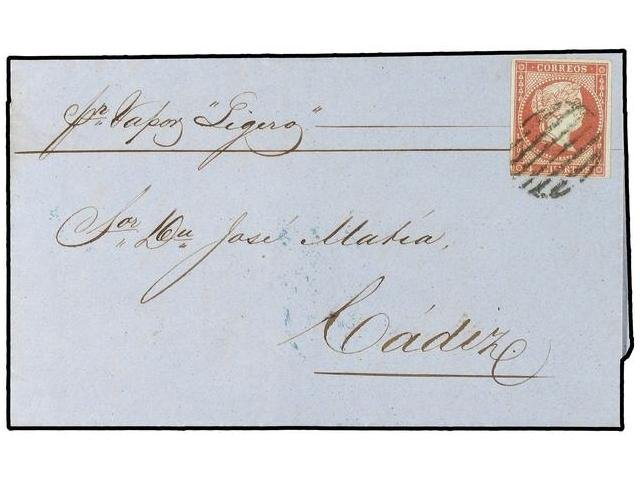 pr. Vapor "Ligero"
CORREOS
Sor. Dn. José Matía,
Cádiz.